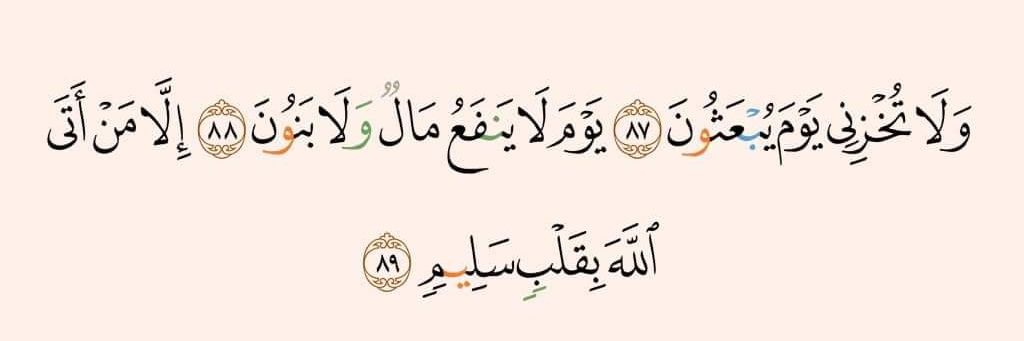 وَلَا تُخْزِنِى يَوْمَ يُبْعَثُونَ ٨٧ يَوْمَ لَا يَنفَعُ مَالٌ وَلَا بَنُونَ ٨٨ إِلَّا مَنْ أَتَى
ٱللَّهَ بِقَلْبٍ سَلِيمٍ ٨٩